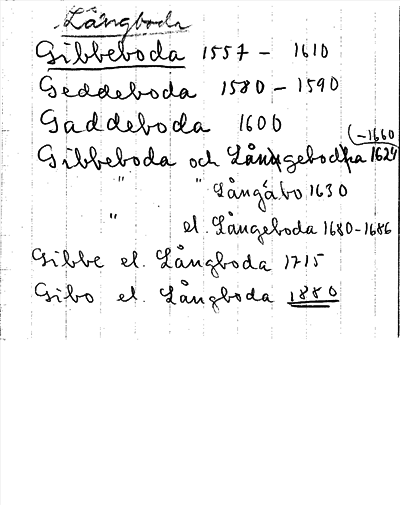 Långboda
Gibbeboda 1557 - 1610
Geddeboda 1580 - 1590
Gaddeboda 1600
(-1660
Gibbeboda och Långeboda 1624
" " Långåbo 1630
" el. Långeboda 1680-1686
Gibbe el. Långboda 1715
Gibo el. Långboda 1880